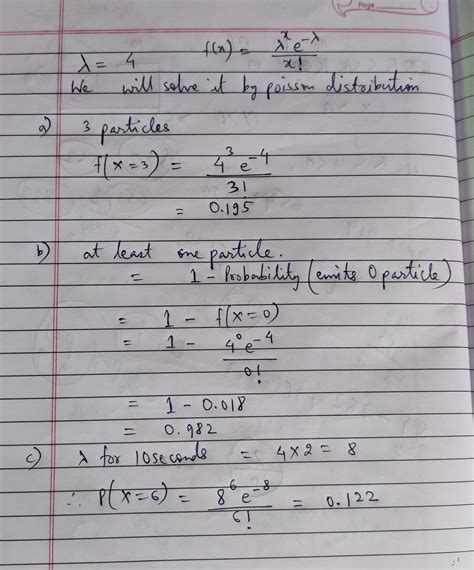 Page
λ = 4 f(x) = λ^x e^-λ / x!
We will solve it by poisson distribution
a) 3 particles
f(x=3) = 4^3 e^-4 / 3!
= 0.195
b) at least one particle.
= 1 - Probability (emits 0 particle)
= 1 - f(x=0)
= 1 - 4^0 e^-4 / 0!
= 1 - 0.018
= 0.982
c) λ for 10 seconds = 4x2 = 8
∴ P(x=6) = 8^6 e^-8 / 6! = 0.122